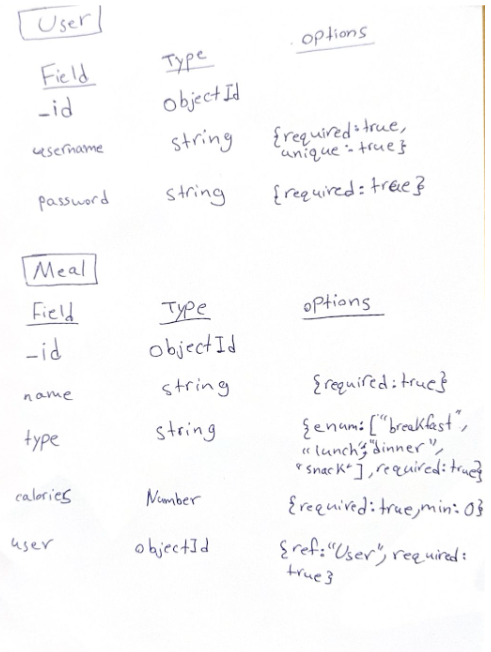 User
Field Type options
_id objectId
username string {required:true,
unique:true}
password string {required:true}
Meal
Field Type options
_id objectId
name string {required:true}
type string {enum:["breakfast",
"lunch","dinner",
"snack"],required:true}
calories Number {required:true,min:0}
user objectId {ref:"User",required:
true}